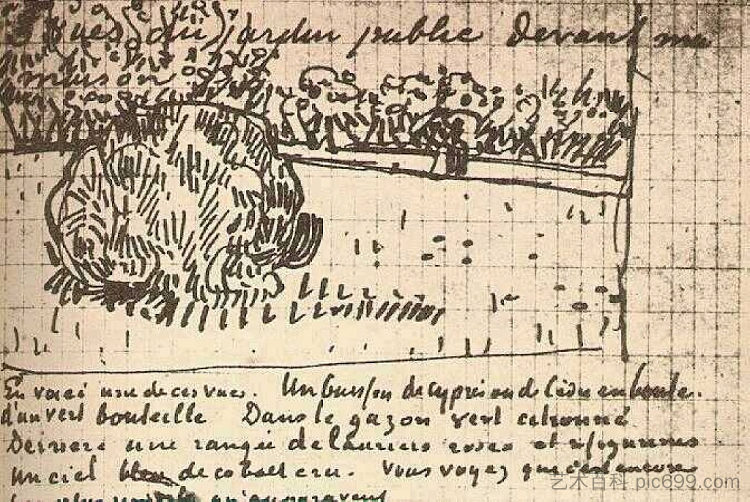 vues du jardin public devant ma
maison
En voici une de ces vues. Un buisson de cyprès ou de cèdre en boule.
d'un vert bouteille Dans le gazon vert citronné
Derriere une rangée de lauriers roses et
Un ciel bleu de cobalt cru. Vous voyez que c'est encore
plus simple qu'auparavant
艺术百科 pic699.com